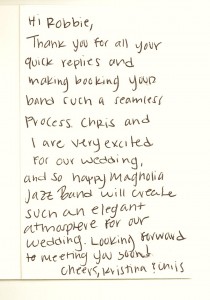 Hi Robbie,
Thank you for all your
quick replies and
making booking your
band such a seamless
Process. Chris and
I are very excited
For our wedding,
and so happy Magnolia
Jazz Band will create
such an elegant
atmosphere for our
wedding. Looking forward
to meeting you soon!
Cheers, Kristina & Chris